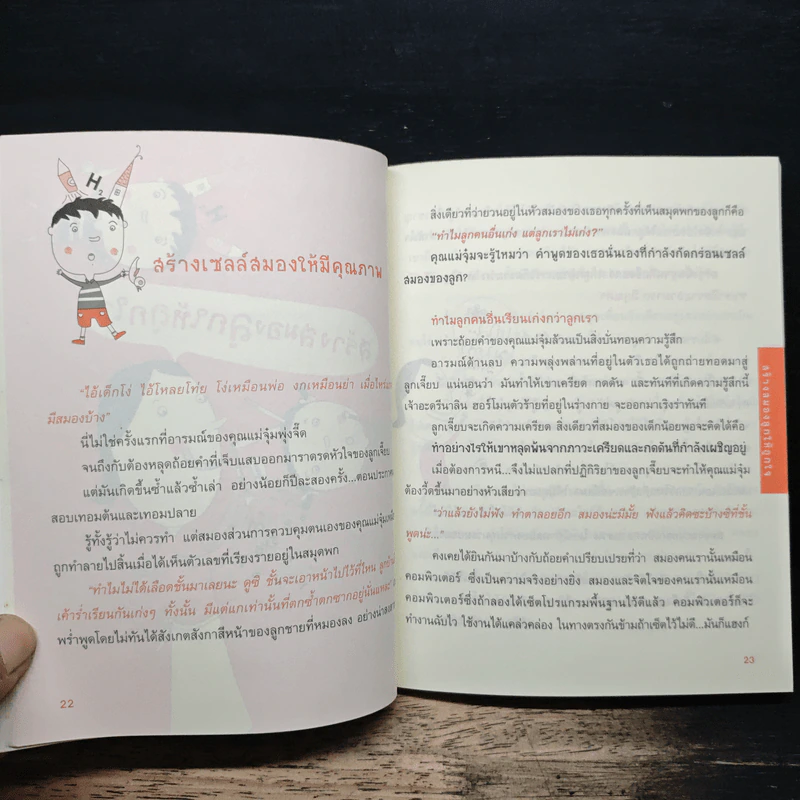 H
สร้างเซลล์สมองให้มีคุณภาพ
"ไอ้เด็กโง่ ไอ้โหลยโท่ย โง่เหมือนพ่อ งกเหมือนย่า เมื่อไหร่
มีสมองบ้าง"
นี่ไม่ใช่ครั้งแรกที่อารมณ์ของคุณแม่จุ๋มพุ่งจี๊ด
จนถึงกับต้องหลุดถ้อยคำที่เจ็บแสบออกมาราดรดหัวใจของลูกเจี๊ยบ
แต่มันเกิดขึ้นซ้ำแล้วซ้ำเล่า อย่างน้อยก็ปีละสองครั้ง...ตอนประกาศ
สอบเทอมต้นและเทอมปลาย
รู้ทั้งรู้ว่าไม่ควรทำ แต่สมองส่วนการควบคุมตนเองของคุณแม่จุ๋ม
ถูกทำลายไปสิ้นเมื่อได้เห็นตัวเลขที่เรียงรายอยู่ในสมุดพก
"ทำไมไม่ได้เลือดชั้นมาเลยนะ ดูซิ ชั้นจะเอาหน้าไปไว้ที่ไหน
เค้าร่ำเรียนกันเก่งๆ ทั้งนั้น มีแต่แกเท่านั้นที่ตกซ้ำตกซากอยู่นั่นแหละ
พร่ำพูดโดยไม่ทันได้สังเกตสังกาสีหน้าของลูกชายที่หมองลง อย่าง
22
สิ่งเดียวที่ว่ายวนอยู่ในหัวสมองของเธอทุกครั้งที่เห็นสมุดพกของลูกก็คือ
"ทำไมลูกคนอื่นเก่ง แต่ลูกเราไม่เก่ง?"
คุณแม่จุ๋มจะรู้ไหมว่า คำพูดของเธอนั่นเองที่กำลังกัดกร่อนเซลล์
สมองของลูก?
ทำไมลูกคนอื่นเรียนเก่งกว่าลูกเรา
เพราะถ้อยคำของคุณแม่จุ๋มล้วนเป็นสิ่งบั่นทอนความรู้สึก
อารมณ์ด้านลบ ความพลุ่งพล่านที่อยู่ในตัวเธอได้ถูกถ่ายทอดมาสู่
ลูกเจี๊ยบ แน่นอนว่า มันทำให้เขาเครียด กดดัน และทันทีที่เกิดความรู้สึกนี้
เจ้าอะดรีนาลิน ฮอร์โมนตัวร้ายที่อยู่ในร่างกาย จะออกมาเริงร่าทันที
ลูกเจี๊ยบจะเกิดความเครียด สิ่งเดียวที่สมองของเด็กน้อยพอจะคิดได้คือ
ทำอย่างไรให้เขาหลุดพ้นจากภาวะเครียดและกดดันที่กำลังเผชิญอยู่
เมื่อต้องการหนี...จึงไม่แปลกที่ปฏิกิริยาของลูกเจี๊ยบจะทำให้คุณแม่จุ๋ม
ต้องวี้ดขึ้นมาอย่างหัวเสียว่า
"ว่าแล้วยังไม่ฟัง ทำตาลอยอีก สมองน่ะมีมั้ย ฟังแล้วคิดซะบ้างซิที่ชั้น
พูดน่ะ..."
คงเคยได้ยินกันมาบ้างกับถ้อยคำเปรียบเปรยที่ว่า สมองคนเรานั้นเหมือน
คอมพิวเตอร์ ซึ่งเป็นความจริงอย่างยิ่ง สมองและจิตใจของคนเรานั้นเหมือน
คอมพิวเตอร์ซึ่งถ้าลองได้เซ็ตโปรแกรมพื้นฐานไว้ดีแล้ว คอมพิวเตอร์ก็จะ
ทำงานฉับไว ใช้งานได้แคล่วคล่อง ในทางตรงกันข้ามถ้าเซ็ตไว้ไม่ดี...มันก็แฮงก์
23
สร้างสมองลูกให้ถูกใจ